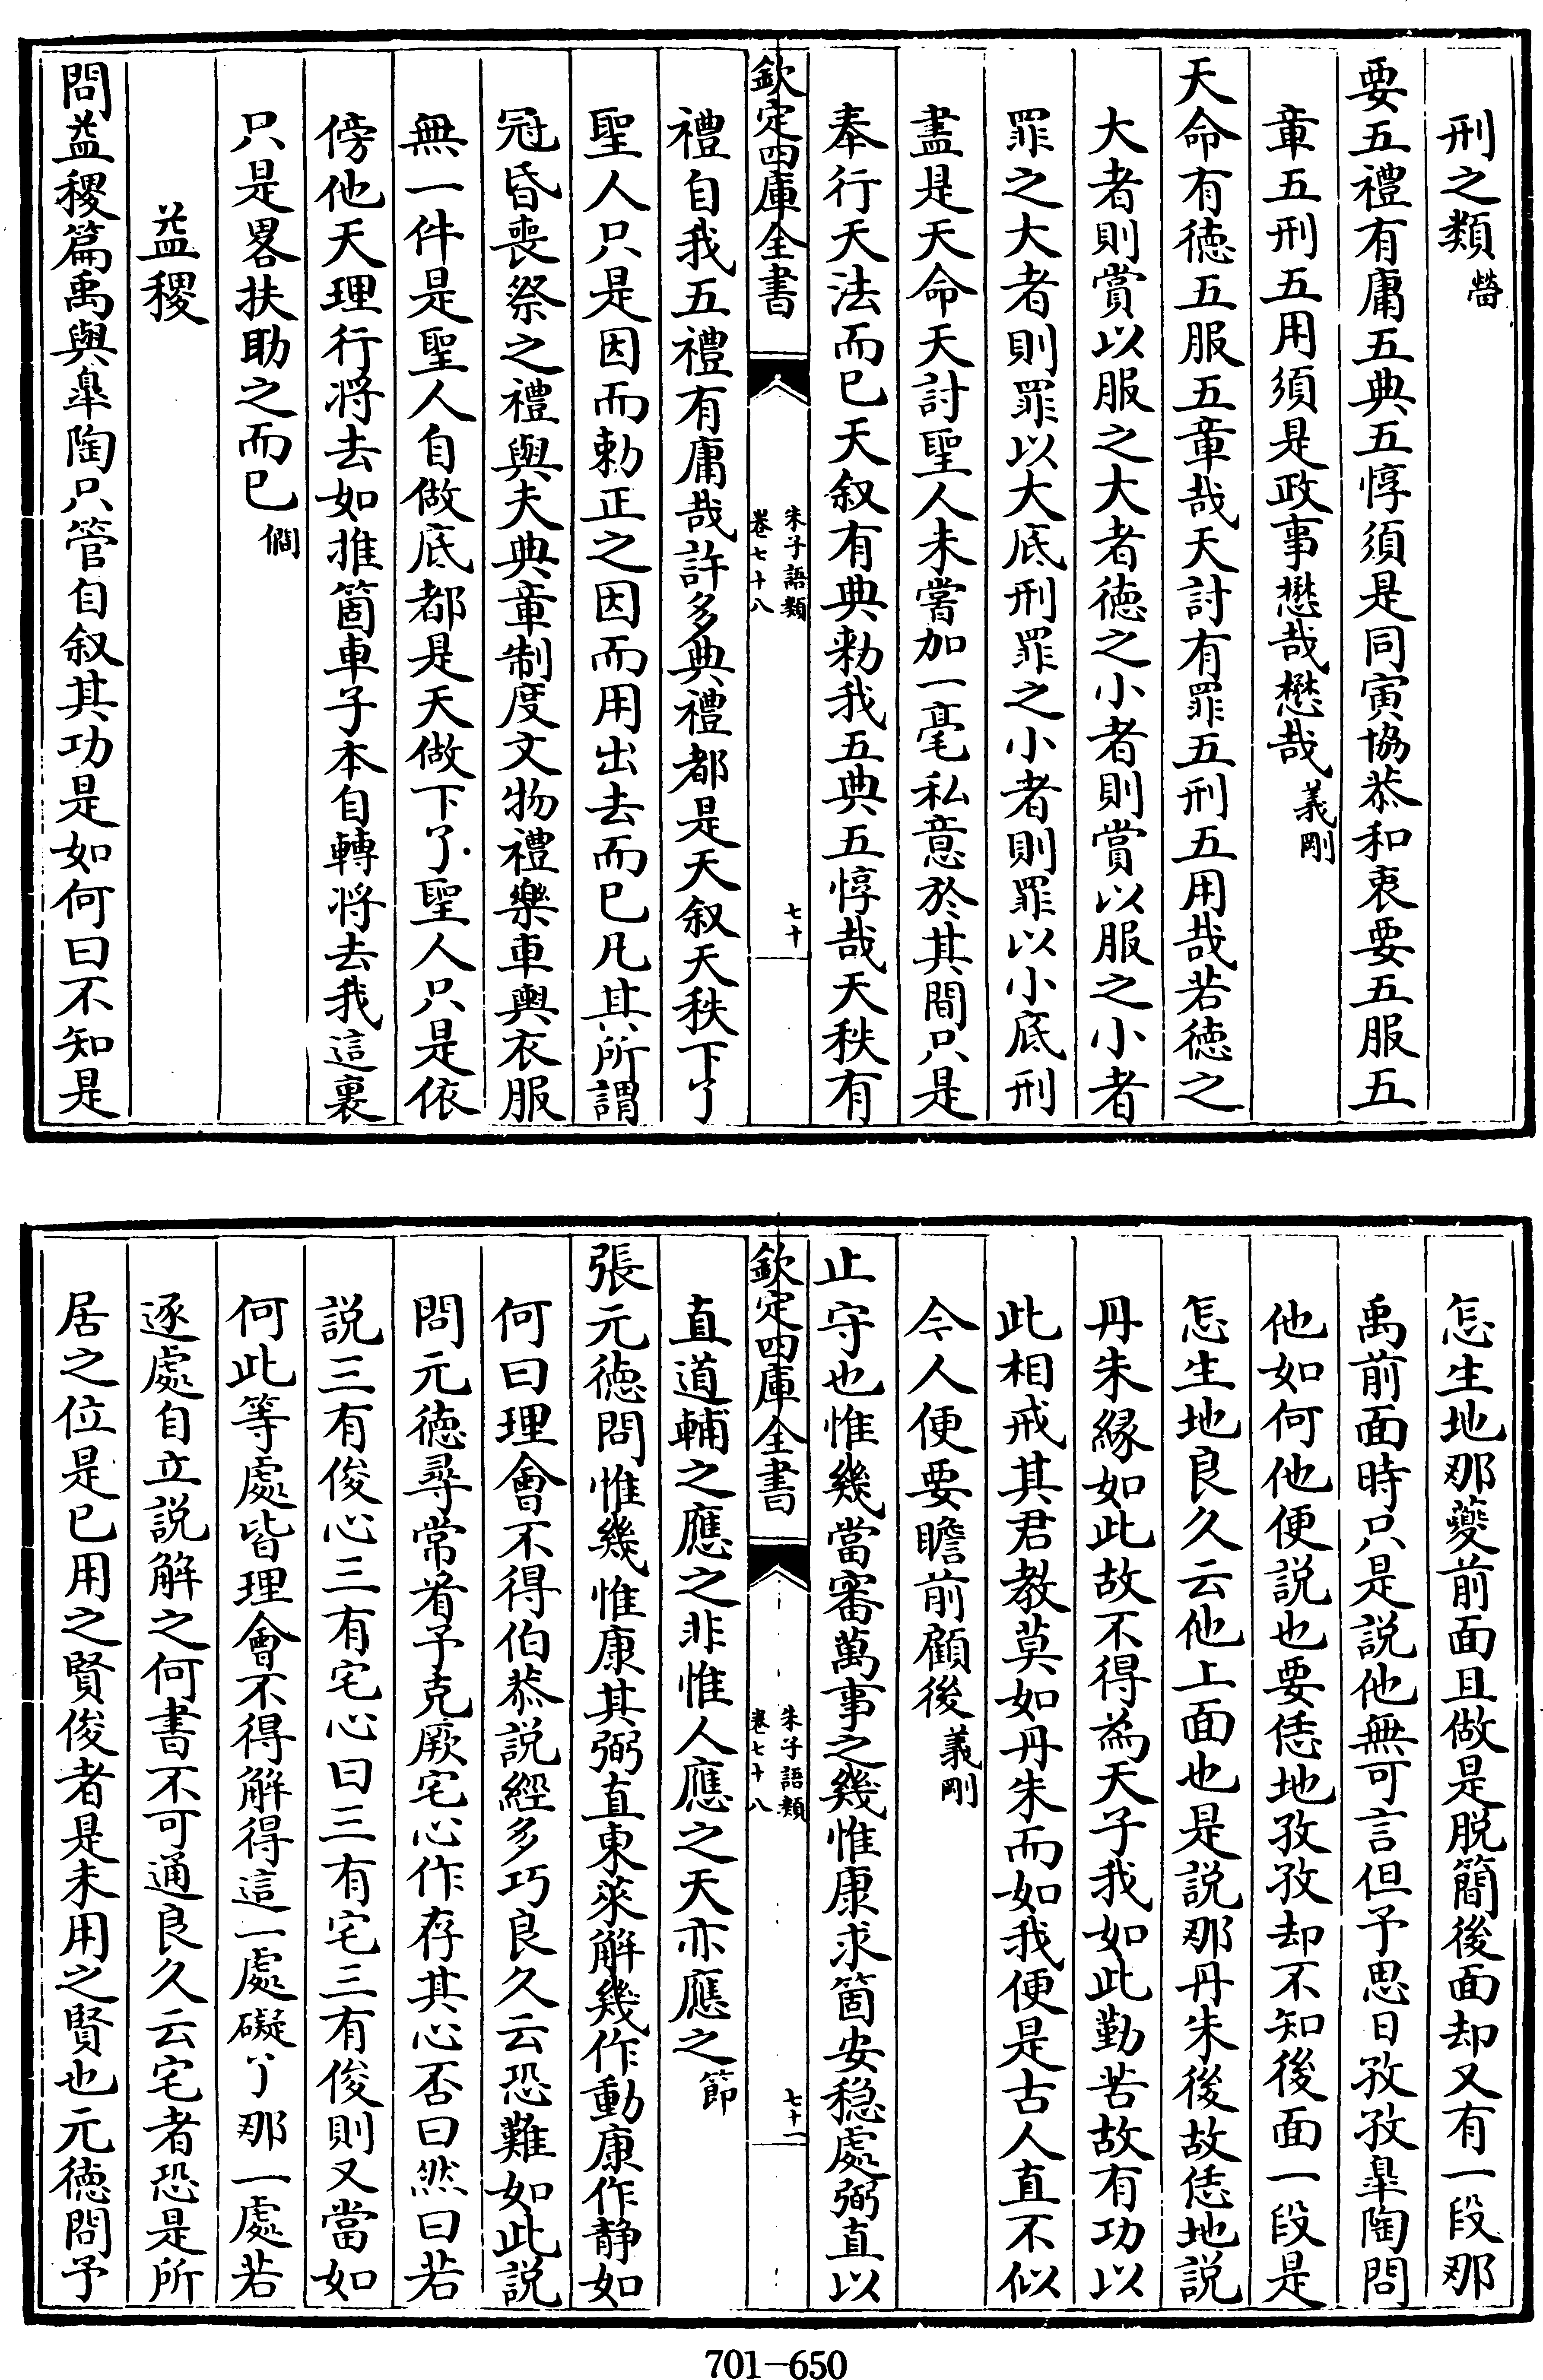 刑之類㽦
要五禮有庸五典五惇須是同寅協恭和衷要五服五
章五刑五用須是政事懋哉懋哉義剛
天命有徳五服五章哉天討有罪五刑五用哉若徳之
大者則賞以服之大者徳之小者則賞以服之小者
罪之大者則罪以大底刑罪之小者則罪以小底刑
盡是天命天討聖人未嘗加一毫私意於其間只是
奉行天法而已天叙有典勅我五典五惇哉天秩有
欽定四庫全書
朱子語類
卷七十八
七十
禮自我五禮有庸哉許多典禮都是天叙天秩下了
聖人只是因而勅正之因而用出去而已凡其所謂
冠昏喪祭之禮與夫典章制度文物禮樂車輿衣服
無一件是聖人自做底都是天做下了聖人只是依
傍他天理行將去如推箇車子本自轉將去我這裏
只是畧扶助之而已僩
益稷
問益稷篇禹與臯陶只管自叙其功是如何曰不知是
怎生地那夔前面且做是脱簡後面却又有一段那
禹前面時只是説他無可言但予思日孜孜臯陶問
他如何他便説也要恁地孜孜却不知後面一段是
怎生地良久云他上面也是説那丹朱後故恁地説
丹朱縁如此故不得為天子我如此勤苦故有功以
此相戒其君教莫如丹朱而如我便是古人直不似
今人便要瞻前顧後義剛
止守也惟幾當審萬事之幾惟康求箇安穏處弼直以
欽定四庫全書
朱子語類
卷七十八
七十一
直道輔之應之非惟人應之天亦應之節
張元徳問惟幾惟康其弼直東萊解幾作動康作静如
何曰理會不得伯恭説經多巧良久云恐難如此説
問元徳尋常看予克厥宅心作存其心否曰然曰若
説三有俊心三有宅心曰三有宅三有俊則又當如
何此等處皆理會不得解得這一處礙了那一處若
逐處自立説解之何書不可通良久云宅者恐是所
居之位是已用之賢俊者是未用之賢也元徳問予
701—650